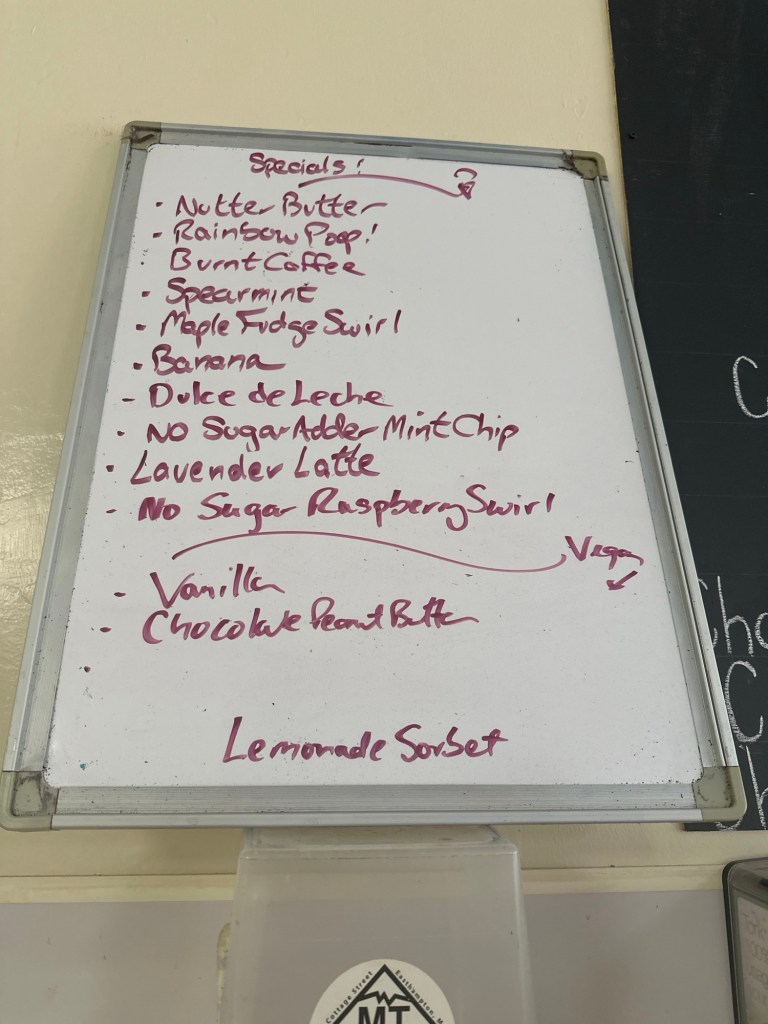 Specials!
· Nutter Butter
- Rainbow Poop!
· Burnt Coffee
- Spearmint
· Maple Fudge Swirl
· Banana
- Dulce de Leche
· NO Sugar Adder Mint Chip
· Lavender Latte
· No Sugar Raspberry Swirl
Vegan
- Vanilla
- Chocolate Peanut Butter
·
Lemonade Sorbet
Cottage Street
Easthampton, M
MT
C
Cho
C